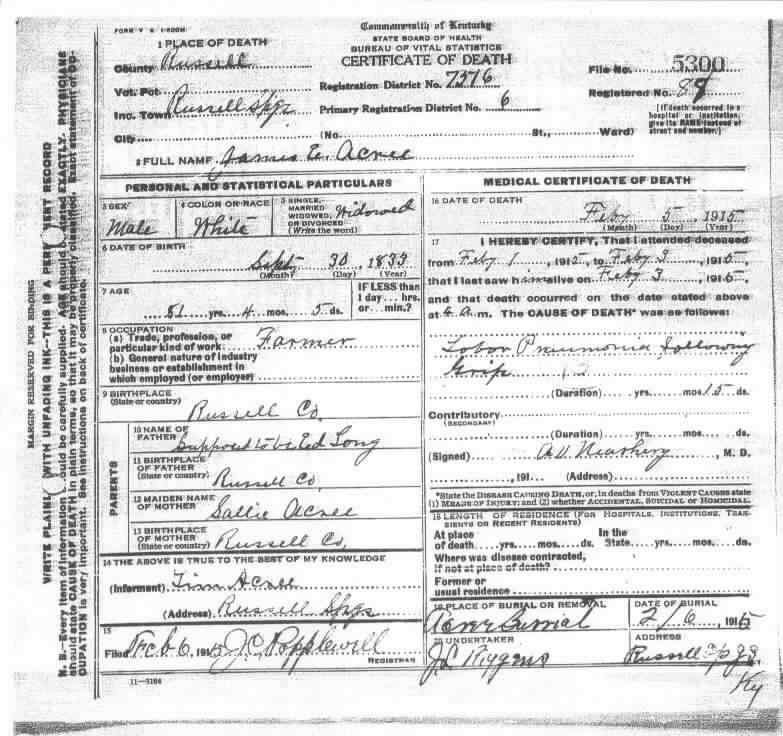 FORM V. S. 1-500M
Commonwealth of Kentucky
STATE BOARD OF HEALTH
BUREAU OF VITAL STATISTICS
CERTIFICATE OF DEATH
1 PLACE OF DEATH
County Russell
Vot. Pct.
Inc. Town Russell Spgs
City
Registration District No. 7376
Primary Registration District No. 6
(No. St., Ward)
File No. 5300
Registered No. 88
[If death occurred in a
hospital or institution,
give its NAME instead of
street and number.]
2 FULL NAME James E. Acree
PERSONAL AND STATISTICAL PARTICULARS
3 SEX
Male
4 COLOR OR RACE
White
5 SINGLE,
MARRIED
WIDOWED,
OR DIVORCED
(Write the word)
Widowed
6 DATE OF BIRTH
Sept 30, 1833
(Month) (Day) (Year)
7 AGE
81 yrs. 4 mos. 5 ds.
IF LESS than
1 day... hrs.
or... min.?
8 OCCUPATION
(a) Trade, profession, or
particular kind of work
Farmer
(b) General nature of industry
business or establishment in
which employed (or employer)
9 BIRTHPLACE
(State or country)
Russell Co
PARENTS
10 NAME OF
FATHER
Supposed to be Ed Long
11 BIRTHPLACE
OF FATHER
(State or country)
Russell Co,
12 MAIDEN NAME
OF MOTHER
Sallie Acree
13 BIRTHPLACE
OF MOTHER
(State or country)
Russell Co,
14 THE ABOVE IS TRUE TO THE BEST OF MY KNOWLEDGE
(Informant) Tim Acree
(Address) Russell Spgs
15
Filed Feb 6, 1915 J.C. Popplewell
REGISTRAR
11-3184
MEDICAL CERTIFICATE OF DEATH
16 DATE OF DEATH
Feby 5 1915
(Month) (Day) (Year)
17 I HEREBY CERTIFY, That I attended deceased
from Feby 1, 1915, to Feby 3, 1915,
that I last saw him alive on Feby 3, 1915,
and that death occurred on the date stated above
at 6 A.m. The CAUSE OF DEATH* was as follows:
Lobar Pneumonia following
Grip
(Duration) yrs. mos 15 ds.
Contributory
(SECONDARY)
(Duration) yrs. mos. ds.
(Signed) M. D.
, 191 (Address)
*State the DISEASE CAUSING DEATH, or, in deaths from VIOLENT CAUSES state
(1) MEANS OF INJURY; and (2) whether ACCIDENTAL, SUICIDAL or HOMICIDAL.
18 LENGTH OF RESIDENCE (FOR HOSPITALS, INSTITUTIONS, TRAN-
SIENTS OR RECENT RESIDENTS)
At place
of death yrs. mos. ds.
In the
State yrs. mos. ds.
Where was disease contracted,
if not at place of death?
Former or
usual residence
19 PLACE OF BURIAL OR REMOVAL
Acree Burrial
DATE OF BURIAL
2/6 1915
20 UNDERTAKER
J.L. Riggens
ADDRESS
Russell Spgs.
Ky
MARGIN RESERVED FOR BINDING
WRITE PLAINLY WITH UNFADING INK—THIS IS A PERMANENT RECORD
N. B.—Every item of information should be carefully supplied. AGE should be stated EXACTLY. PHYSICIANS
should state CAUSE OF DEATH in plain terms, so that it may be properly classified. Exact statement of OC-
CUPATION is very important. See instructions on back of certificate.